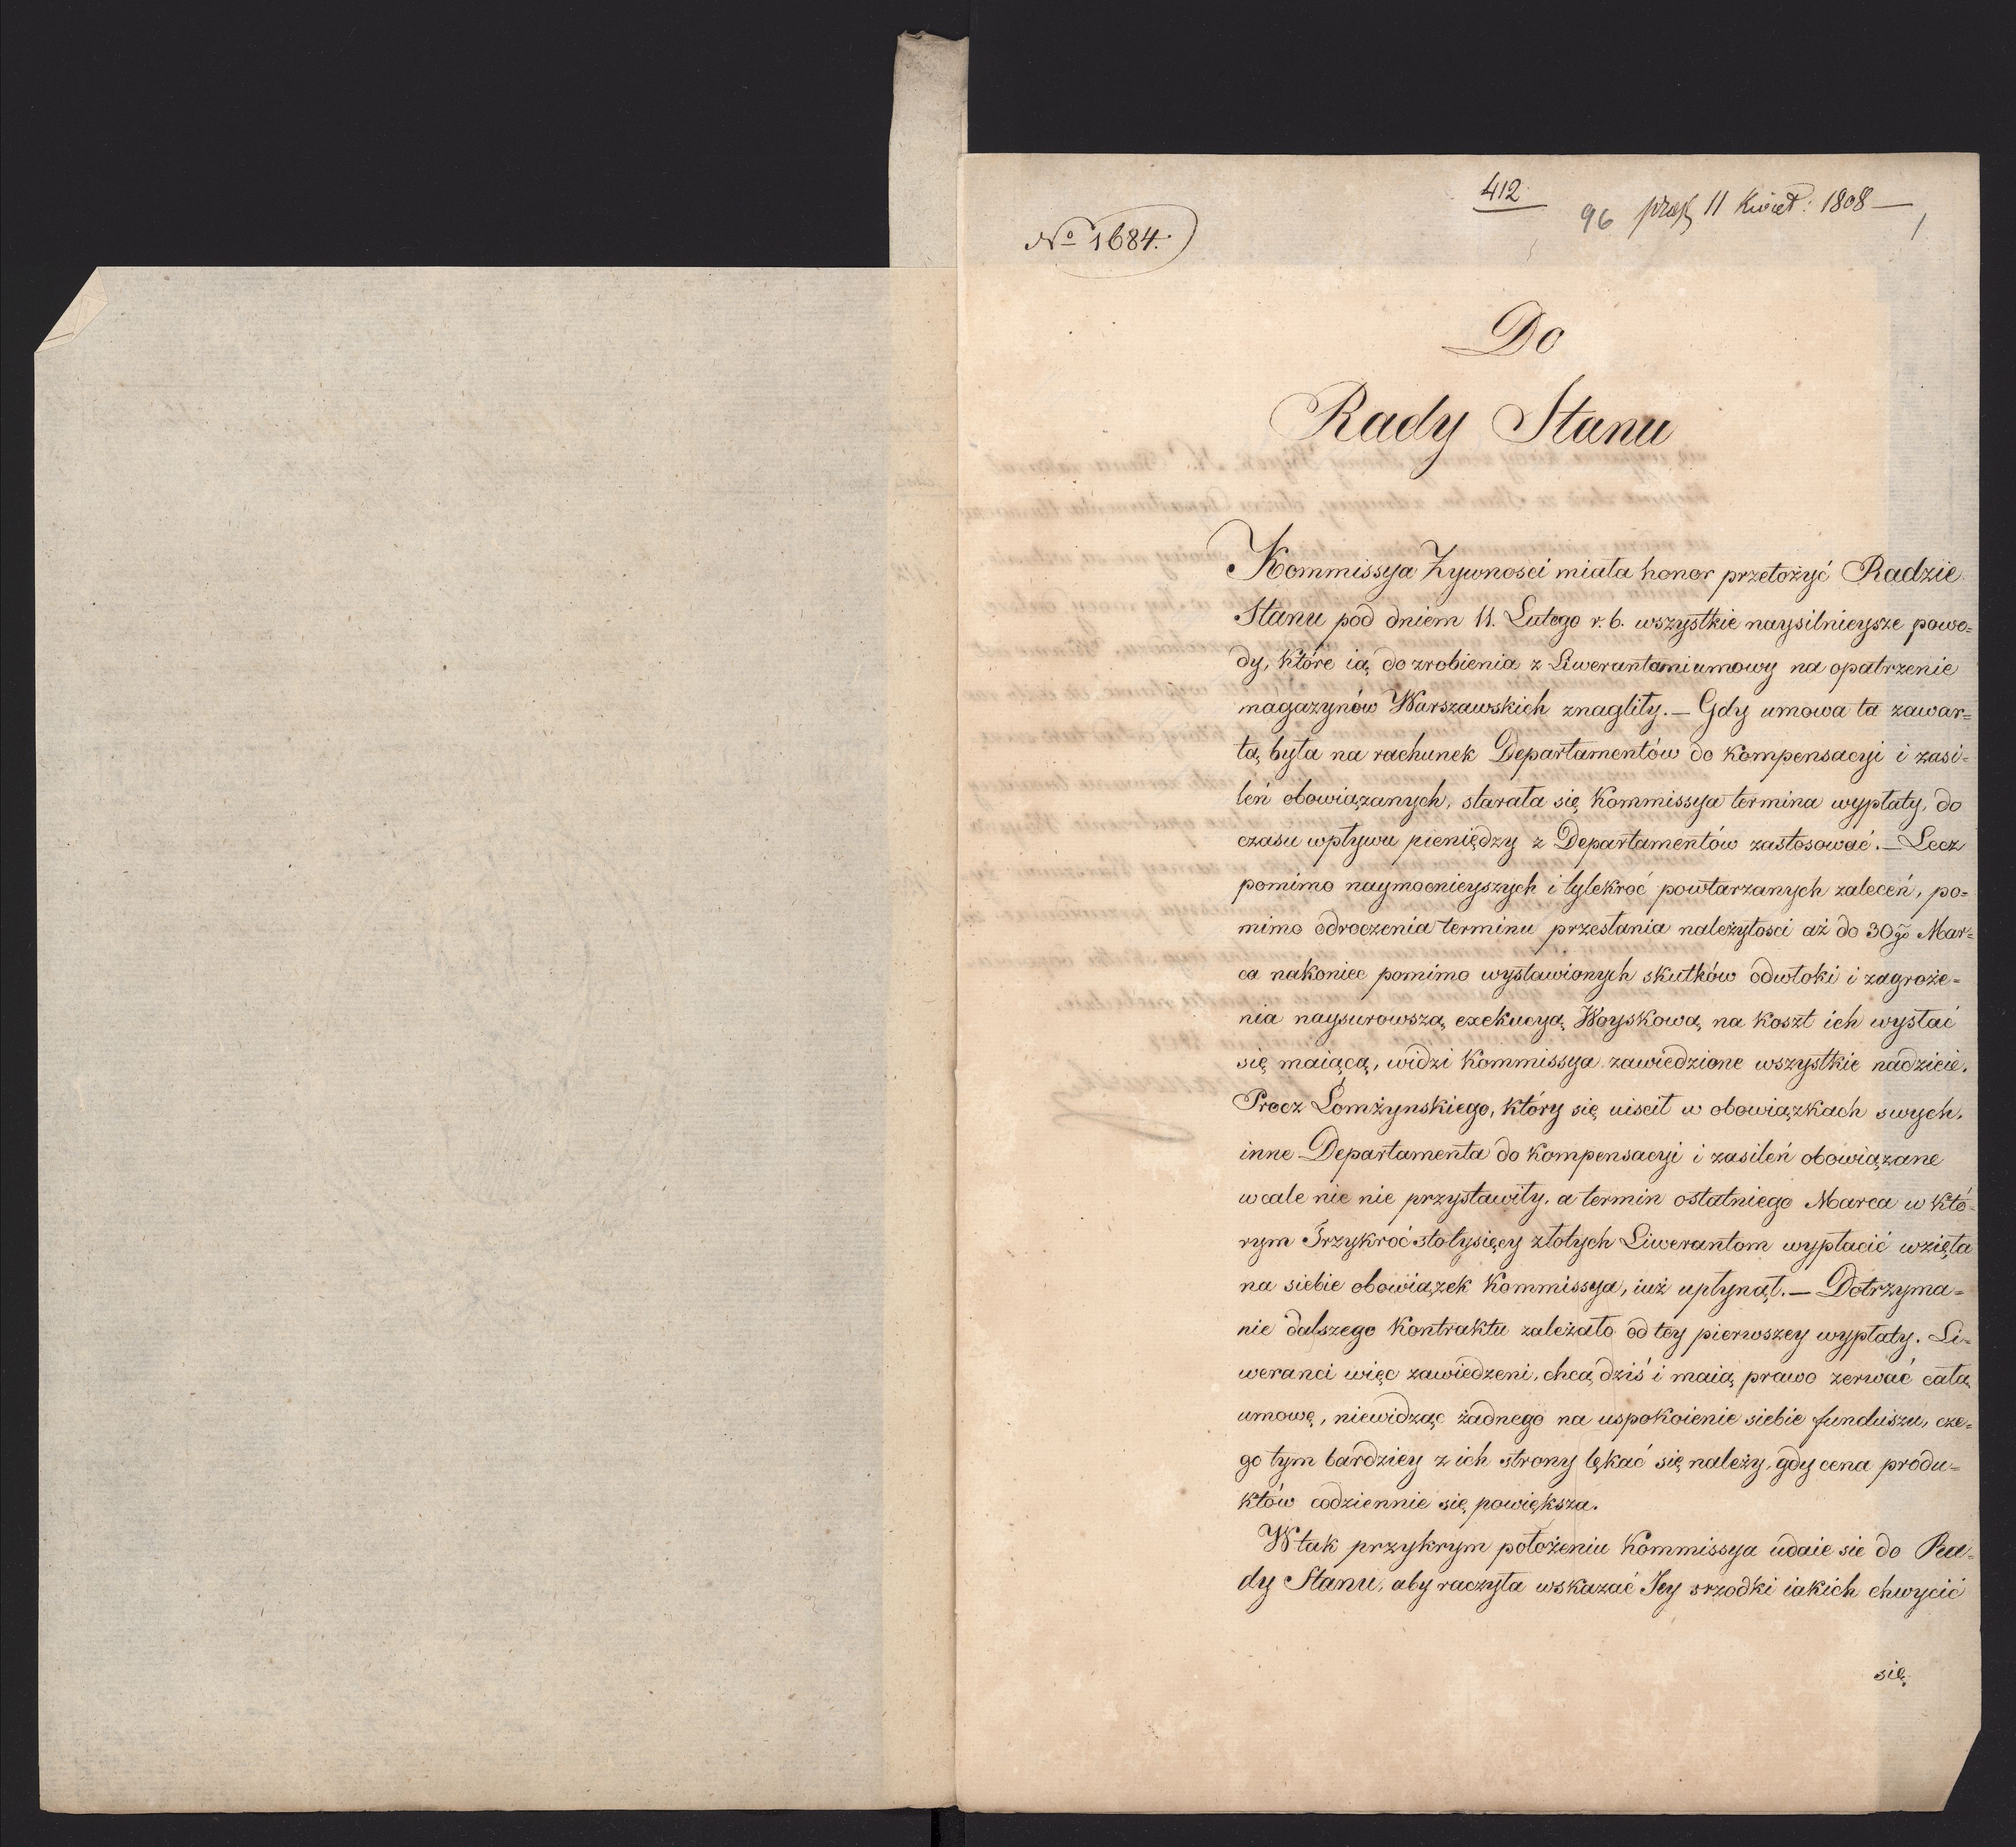 412.
96 11 Kwiet: 1808 —
1
No 1684.
Do
Rady Stanu
Kommissya Zywnosci miała honor przełożyć Radzie
Stanu pod dniem 11. Lutego r. b. wszystkie naysilnieysze powo=
dy, które ią do zrobienia z Liwerantami umowy na opatrzenie
magazynów Warszawskich znagliły. — Gdy umowa ta zawar=
tą była na rachunek Departamentów do Kompensacyi i zasi=
leń obowiązanych, starała się Kommissya termina wypłaty, do
czasu wpływu pieniędzy z Departamentów zastosować. — Lecz
pomimo naymocnieyszych i tylekroć powtarzanych zaleceń, po=
mimo odroczenia terminu przesłania należytosci aż do 30go Mar=
ca nakoniec pomimo wystawionych skutków odwłoki i zagroże=
nia naysurowszą exekucyą Woyskową na koszt ich wysłać
się maiącą, widzi Kommissya zawiedzione wszystkie nadzieie.
Procz Łomżynskiego, który się uiscił w obowiązkach swych,
inne Departamenta do Kompensacyi i zasileń obowiązane
wcale nic nie przystawiły, a termin ostatniego Marca w któ=
rym Trzykroć stotysięcy złotych Liwerantom wypłacić wzięła
na siebie obowiązek Kommissya, iuż upłynął. — Dotrzyma=
nie dalszego Kontraktu zależało od tey pierwszey wypłaty. Li=
weranci więc zawiedzeni, chcą dziś i maią prawo zerwać całą
umowę, niewidząc żadnego na uspokoienie siebie funduszu, cze=
go tym bardziey z ich strony lękać się należy, gdy cena produ=
któw codziennie się powiększa.
W tak przykrym położeniu Kommissya udaie sie do Ra=
dy Stanu, aby raczyła wskazać Jey srzodki iakich chwycić
się